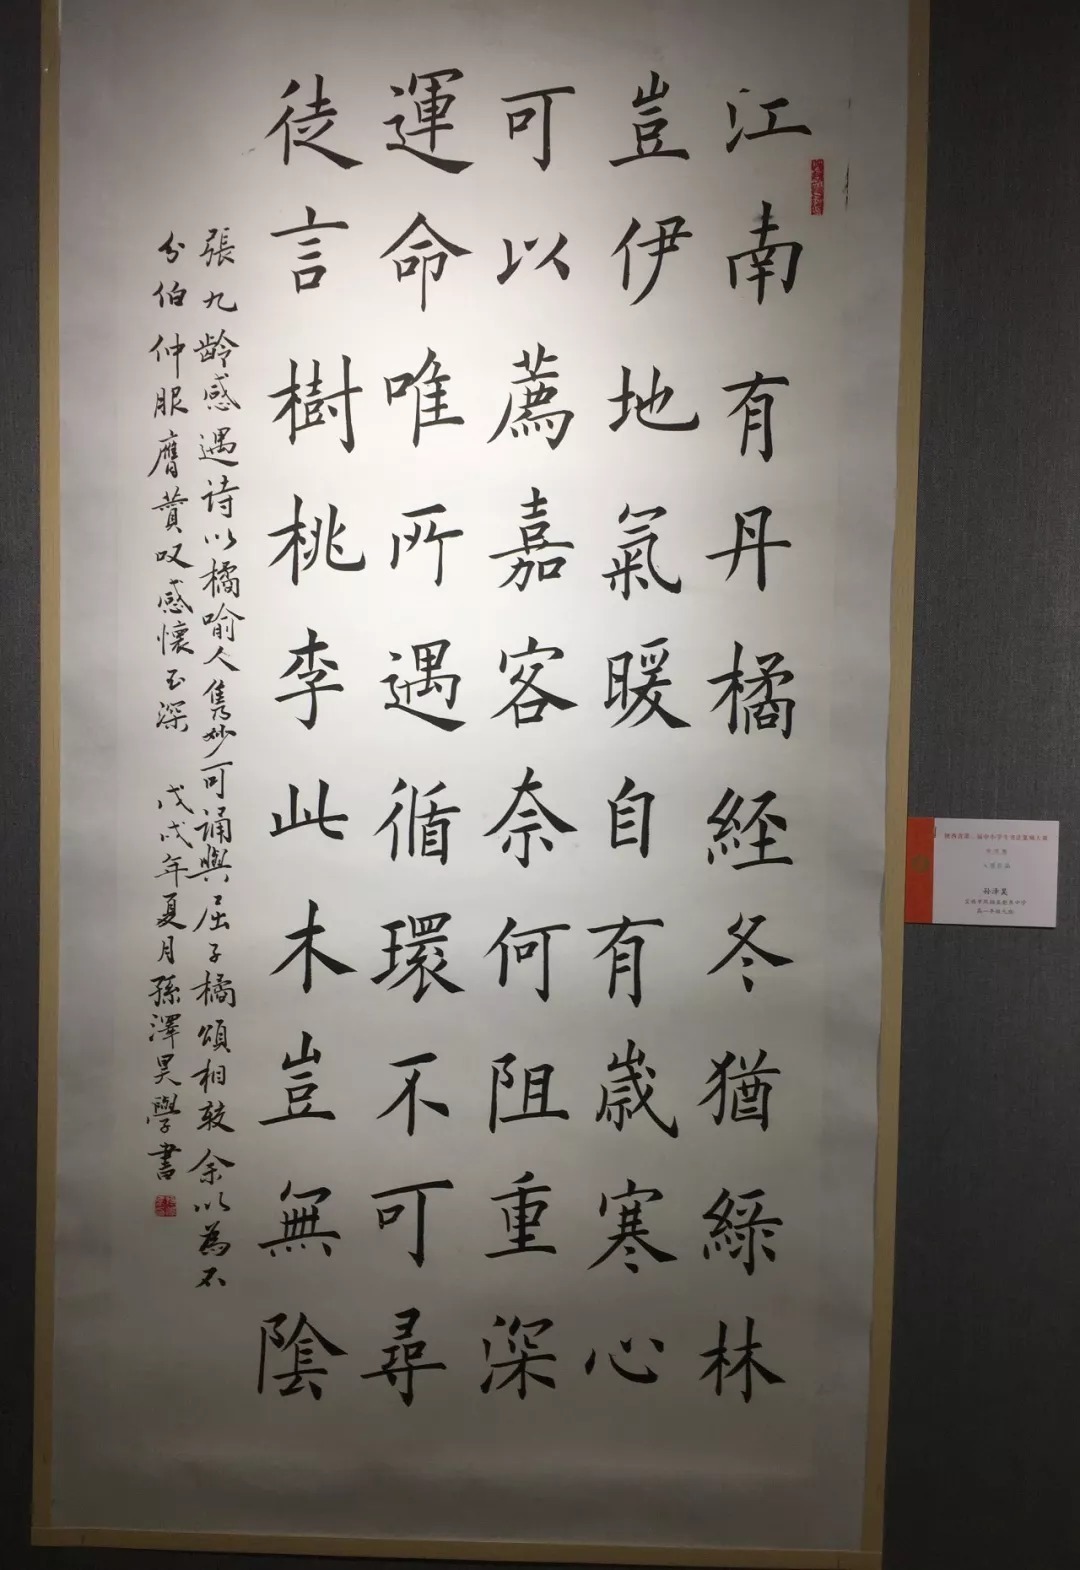 江南有丹橘經冬猶綠林
豈伊地氣暖自有歲寒心
可以薦嘉客奈何阻重深
運命唯所遇循環不可尋
徒言樹桃李此木豈無陰
張九齡感遇诗以橘喻人隽妙可誦與屈子橘頌相較余以為不
分伯仲服膺賛叹感懷至深 戊戌年夏月孫澤昊學書
孙泽昊